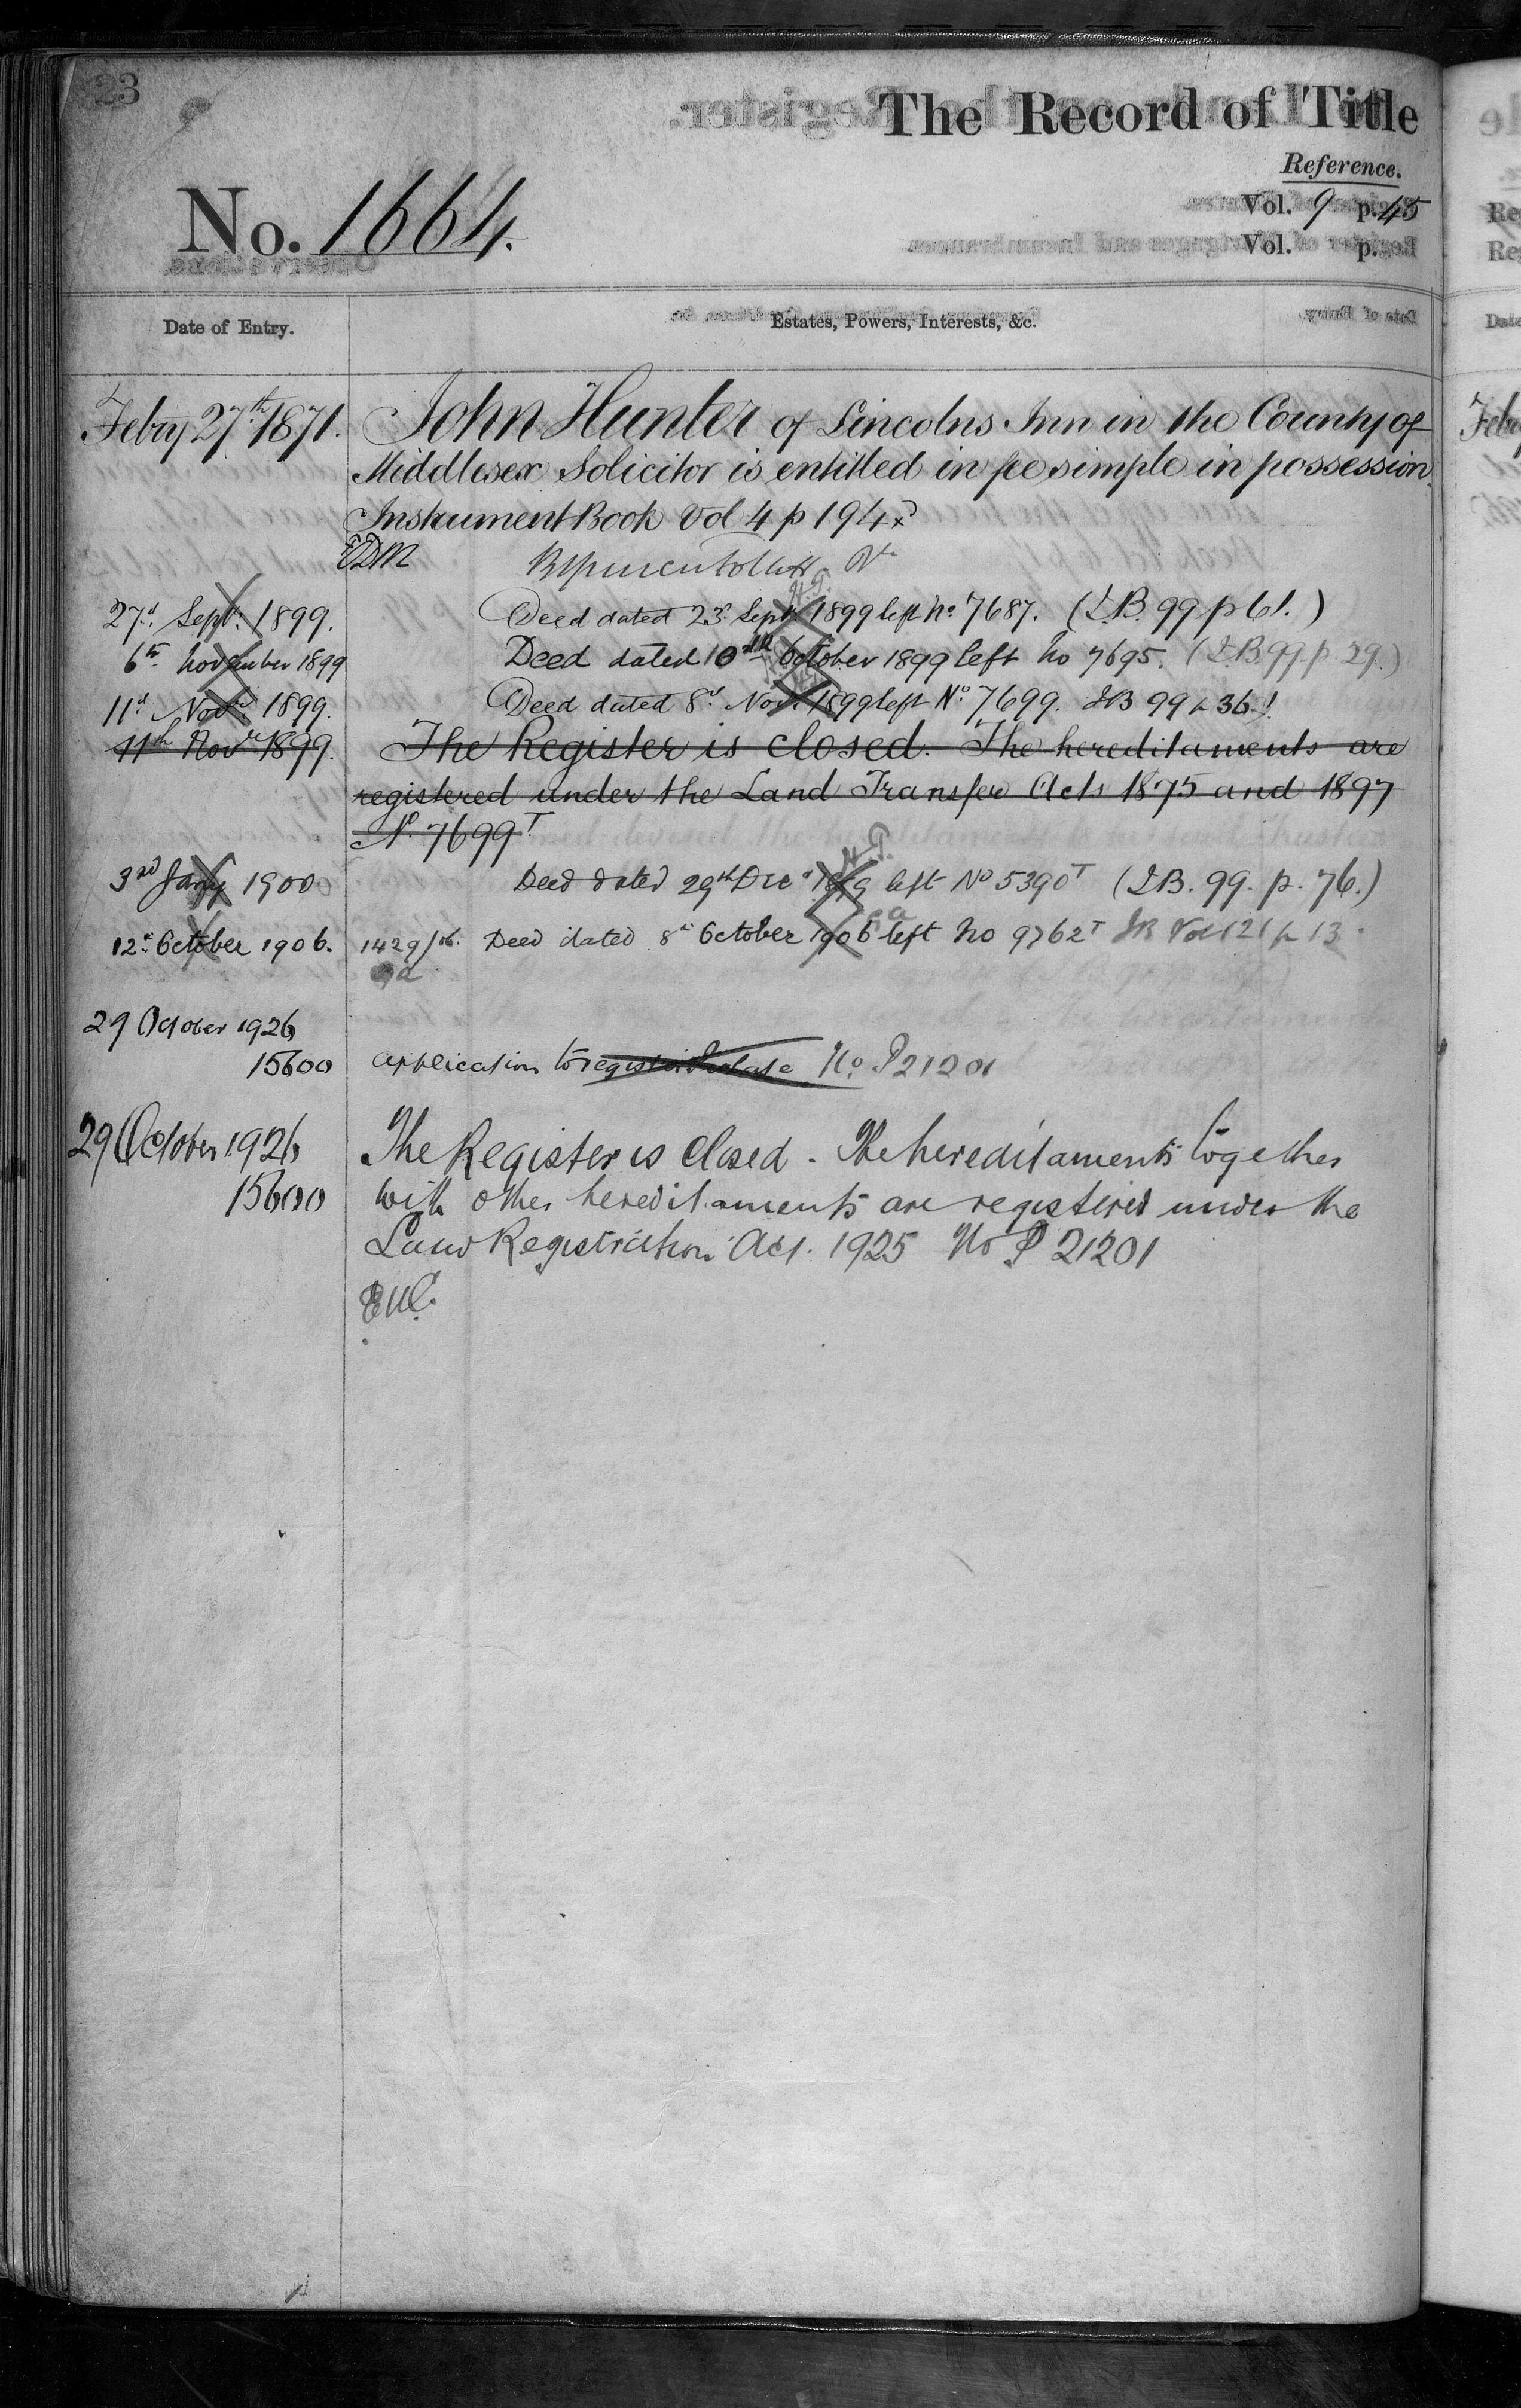 23
The Record of Title
Reference.
No. 1664.
Vol. 9 p. 45
Vol. p.
Date of Entry. Estates, Powers, Interests, &c.
Febry 27th 1871. John Hunter of Lincolns Inn in the County of
Middlesex Solicitor is entitled in fee simple in possession.
Instrument Book Vol 4 p 194
EDM
27th Septr. 1899. Deed dated 23d Septr 1899 left No. 7687. (I.B. 99 p 61.)
6th November 1899 Deed dated 10th October 1899 left No 7695. (I.B. 99. p. 29.)
11th Novr. 1899. Deed dated 8th Novr. 1899 left No. 7699. IB 99 p 36.
11th Novr 1899. The Register is closed. The hereditaments are
registered under the Land Transfer Acts 1875 and 1897
No. 7699T
3rd Jany 1900 Deed dated 29th Decr 1899 left No 5390T (I.B. 99. p. 76.)
12th October 1906. 1429/06. Deed dated 8th October 1906 left No 9762T IB Vol 121 p 13
29 October 1926
15600 application to register No. P21201
29 October 1926 The Register is Closed. The hereditaments together
15600 with other hereditaments are registered under the
Land Registration Act. 1925 No P 21201